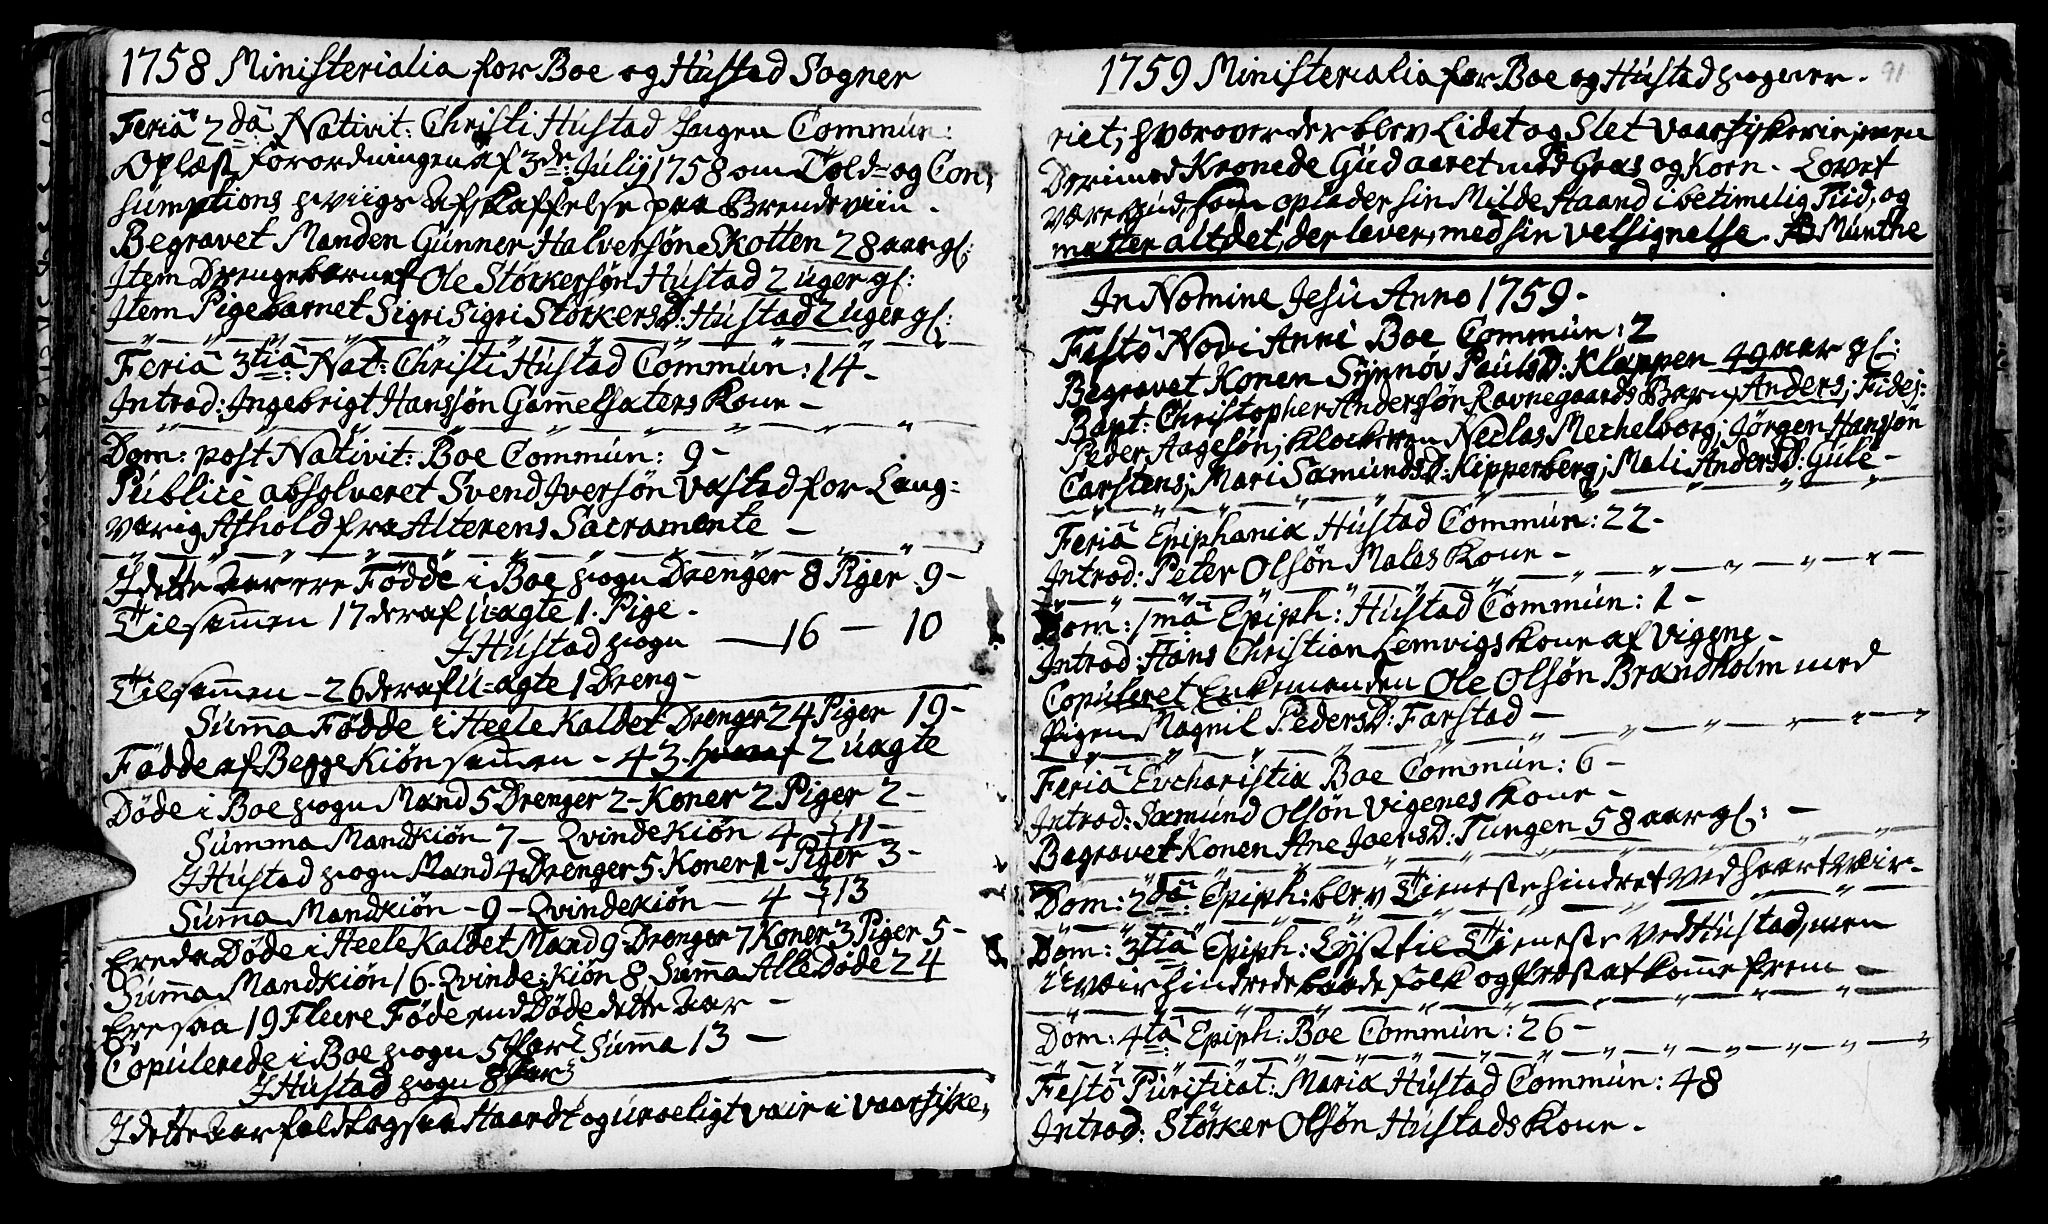 1758 Ministerialia for Boe og Hústad Sogner
Feriâ 2dâ Nativit: Christi Hústad Ingen Commún:
Oplæst Forordningen af 3de: Júlij 1758 om Told- og Con,
súmptions sviigs Afskaffelse paa Brendeviin.
Begravet Manden Gúnner Halversøn Skotten 28 aar gl:
Item Drengebarnet Ole Størkersøn Hústad 2 úger gl:
Item Pigebarnet Sigri Sigri StørkersD: Hústad 2 úger gl:
Feriâ 3tiâ Nat: Christi Hústad Commún: 14-
Introd: Ingebrigt Hanssøn Gamelsæters Kone -
Dom: post Nativit: Boe Commún: 9-
Públicè absolveret Svend Iversøn Vastad for Lang=
varig Afhold fra Alterens Sacramente -
I dette Aar ere Fødde i Boe Sogn Drenger 8 Piger 9-
Tilsamen 17 deraf ú-ægte 1. Pige -
I Hústad Sogn — 16 — 10
Tilsamen - 26 deraf ú=ægte 1 Dreng -
Suma Fødde i Heele Kaldet Drenger 24 Piger 19-
Fødde af Begge Kiøn samen - 43. hvoraf 2 úægte
Døde i Boe Sogn Mænd 5 Drenger 2- Koner 2 Piger 2-
Súmma Mandkiøn 7 - Qvindekiøn 4 } 11 -
I Hústad Sogn Mænd 4 Drenger 5. Koner 1 - Piger 3-
Súma Mandkiøn - 9 - Qvindekiøn - 4 } 13
Ere da Døde i Heele Kaldet Mænd 9 Drenger 7 Koner 3 Piger 5-
Súma Mandkiøn 16. Qvinde-kiøn 8. Súma Alle Døde 24
Ere saa 19 Fleere Føde end Døde dette Aar -
Copúlerede i Boe Sogn 5 Par } Súma 13 -
I Hústad Sogn 8 Par }
I dette Aar faldt ogsaa Haardt og úroeligt vair i vaarfiske,
1759 Ministerialia for Boe og Hústad Sogner. 91
riet, hvorover der blev Lidet og Slet Vaarfiskerie, men
Derimod Kronede Gúd aaret med Græs og Korn. Lovet
være Gúd, som oplader sin Milde Haand i betimelig Tiid, og
mætter alt det, der lever, med sin velsignelse. Múnthe
In Nomine Jesú Anno 1759-
Festô Novi Anni Boe Commún: 2
Begravet Konen Synnøv PaúlsD: Klappen 49 aar gl:
Bapt: Christopher Andersøn Ravnegaards Barn, Anders; Fidej:
Peder Aagesøn; Klockeren Neclas Mechelborg; Jørgen Hansøn
Carstens; Mari SamúndsD: Kipperberg; Mali AndersD: Gúle -
Feriâ Epiphaniæ Hústad Commún: 22-
Introd: Peter Olsøn Males Kone -
Dom: 1mâ Epiph: Hústad Commún: 1 -
Introd: Hans Christian Lemvigs Kone af Vigene -
Copúleret Enkemanden Ole Olsøn Brandholm med
Pigen Magnil PedersD: Farstad -
Feriâ Evcharistiæ Boe Commún: 6 -
Introd: Sæmúnd Olsøn Vigenes Kone -
Begravet Konen Ane JoensD: Túngen 58 aar gl: -
Dom: 2dâ: Epiph: blev Tieneste hindret Ved haart Vair -
Dom: 3tiâ Epiph: Lyst til Tieneste Ved Hústad, men
úvair hindrede baade folk og Præst at kome frem -
Dom: 4tâ Epiph: Boe Commún: 26 -
Festô Púrificat: Mariæ Hústad Commún: 48
Introd: Størker Olsøn Hústads Kone -